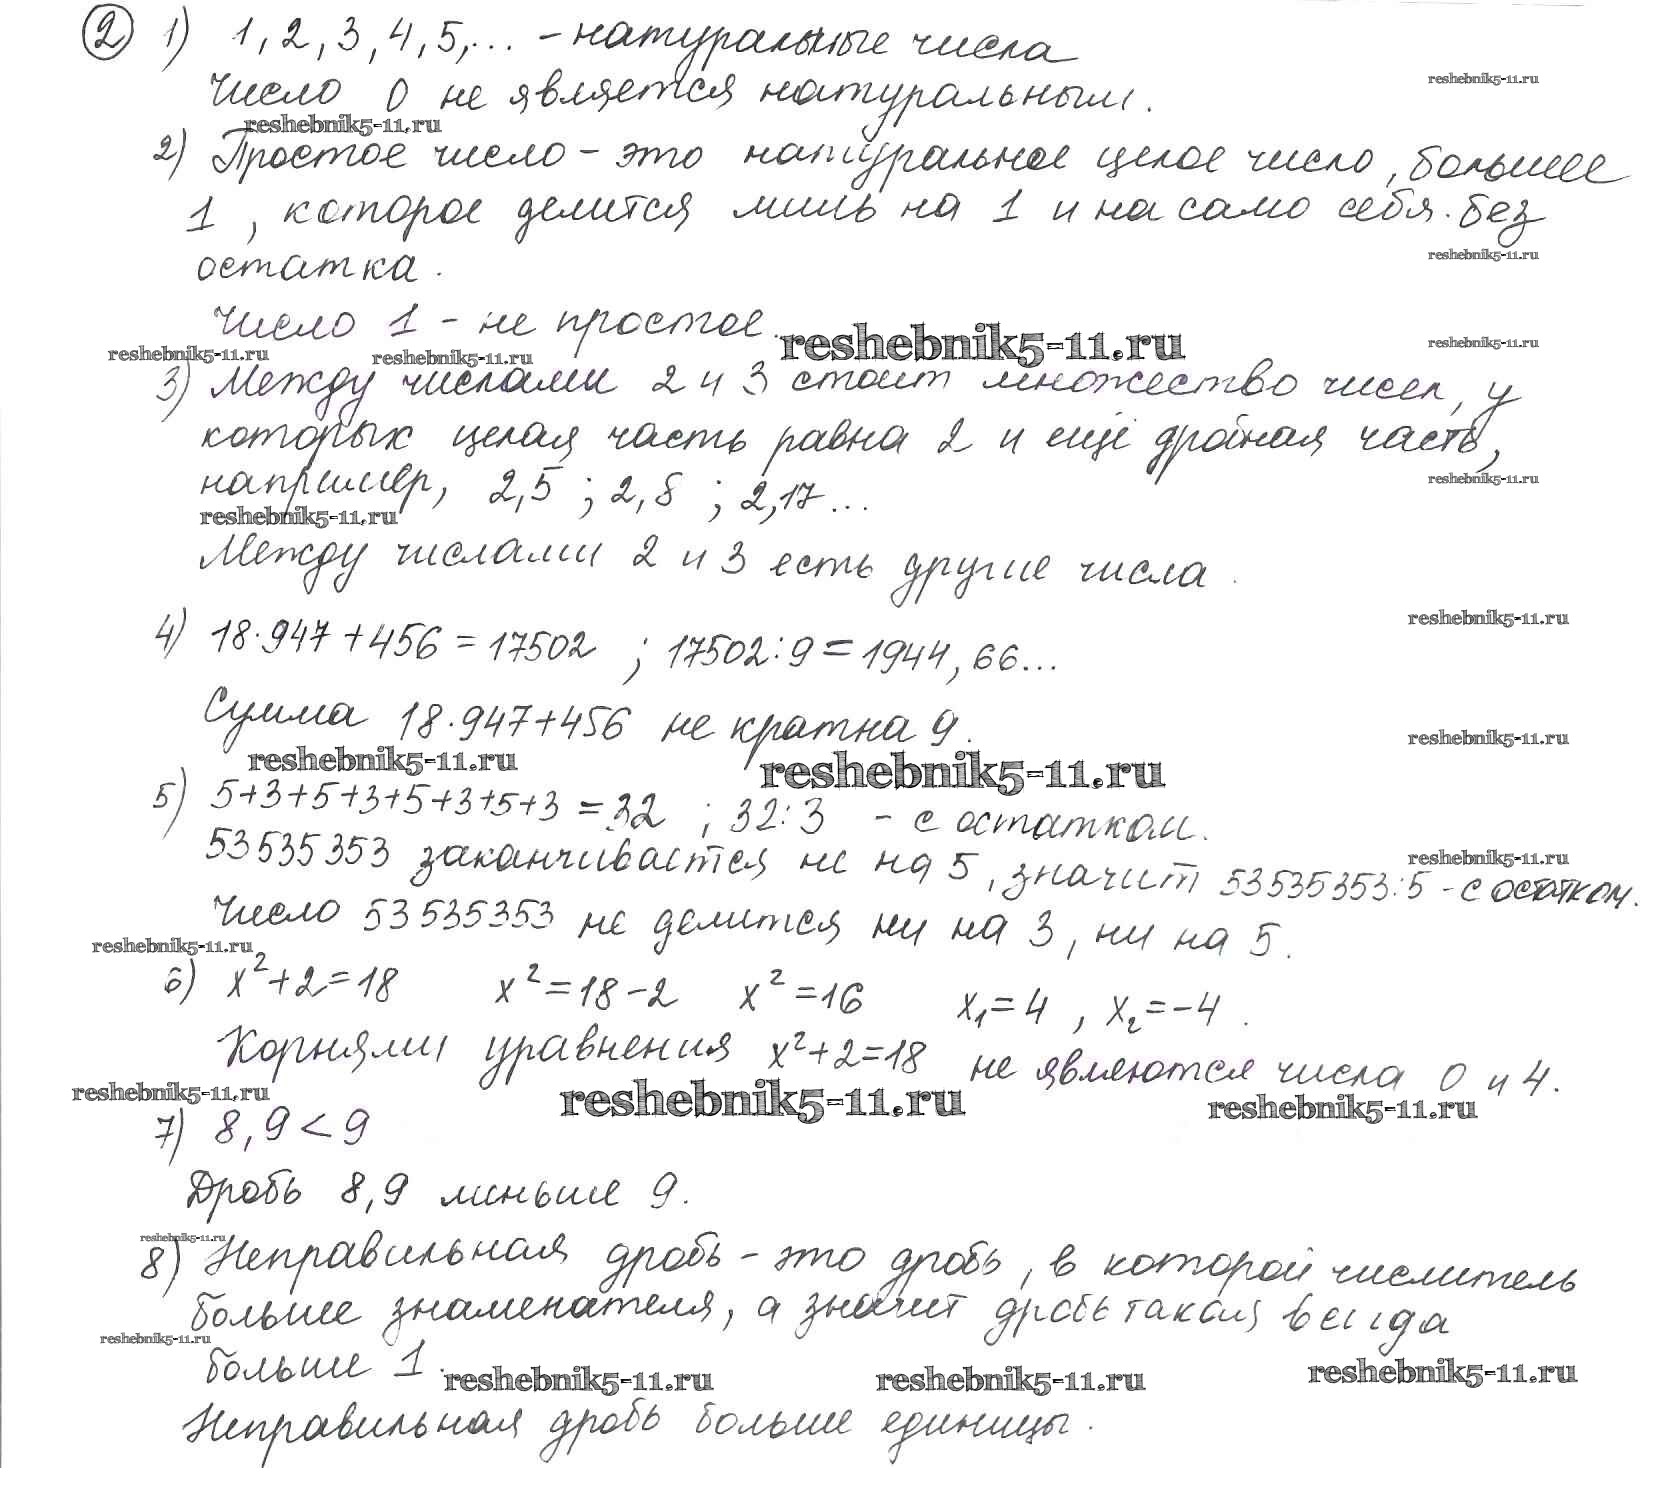 ② 1) 1, 2, 3, 4, 5, ... – натуральные числа
reshebnik5-11.ru
Число 0 не является натуральным.
reshebnik5-11.ru
2) Простое число – это натуральное целое число, большее
1, которое делится лишь на 1 и на само себя. без
reshebnik5-11.ru
остатка.
Число 1 – не простое.
reshebnik5-11.ru
reshebnik5-11.ru
reshebnik5-11.ru
reshebnik5-11.ru
3) Между числами 2 и 3 стоит множество чисел, у
которых целая часть равна 2 и ещё дробная часть,
например, 2,5 ; 2,8 ; 2,17...
reshebnik5-11.ru
reshebnik5-11.ru
Между числами 2 и 3 есть другие числа.
reshebnik5-11.ru
4) 18·947+456=17502 ; 17502:9=1944,66...
Сумма 18·947+456 не кратна 9.
reshebnik5-11.ru
reshebnik5-11.ru
reshebnik5-11.ru
5) 5+3+5+3+5+3+5+3=32 ; 32:3 – с остатком.
reshebnik5-11.ru
53535353 заканчивается не на 5, значит 53535353:5 – с остатком.
Число 53535353 не делится ни на 3, ни на 5.
reshebnik5-11.ru
6) x²+2=18 x²=18-2 x²=16 x₁=4 , x₂=-4.
Корнями уравнения x²+2=18 не являются числа 0 и 4.
reshebnik5-11.ru
reshebnik5-11.ru
reshebnik5-11.ru
7) 8,9<9
Дробь 8,9 меньше 9.
reshebnik5-11.ru
8) Неправильная дробь – это дробь, в которой числитель
больше знаменателя, а значит дробь такая всегда
reshebnik5-11.ru
больше 1.
reshebnik5-11.ru
reshebnik5-11.ru
reshebnik5-11.ru
Неправильная дробь больше единицы.